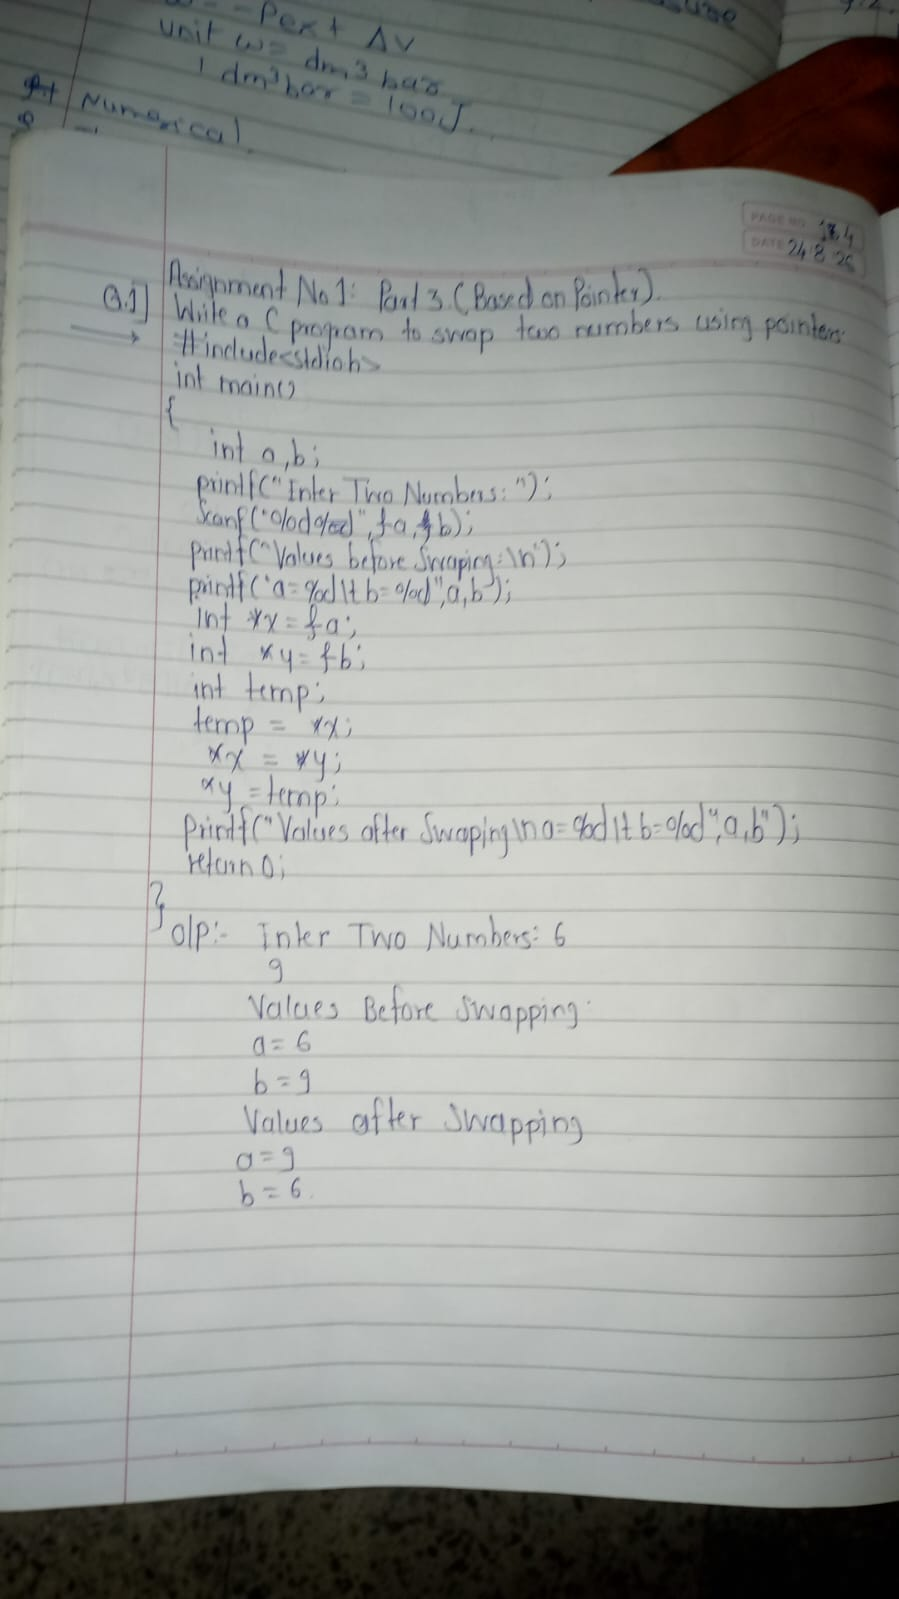 -Pext ΔV
unit w= dm3 bar
1 dm3 bar = 100J.
Numerical
PAGE NO 184
DATE 24.8.25
Assignment No 1: Part 3. (Based on Pointer).
Q.1] Write a C program to swap two numbers using pointers.
→ #include<stdioh>
int main()
{
int a,b;
printf("Inter Two Numbers: ");
Scanf("%d%d",&a,&b);
printf("Values before Swaping:\n");
printf("a=%d\t b=%d",a,b");
int *x=&a;
int *y=&b;
int temp;
temp = *x;
*x = *y;
*y =temp;
Printf("Values after Swaping\n a=%d\t b=%d",a,b");
return 0;
}
O/P:- Inter Two Numbers: 6
9
Values Before Swapping:
a= 6
b = 9
Values after Swapping
a=9
b = 6.